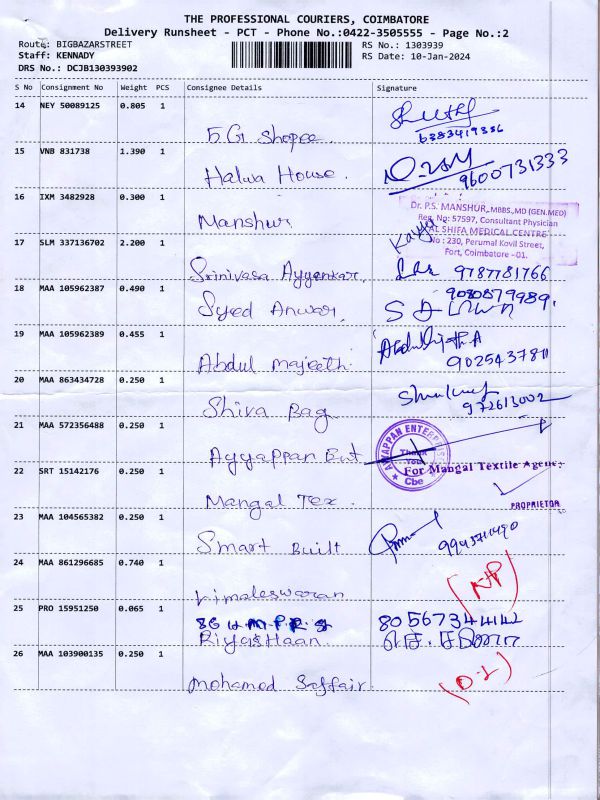 THE PROFESSIONAL COURIERS, COIMBATORE
Delivery Runsheet - PCT - Phone No.:0422-3505555 - Page No.:2
Route: BIGBAZARSTREET
RS No.: 1303939
Staff: KENNADY
RS Date: 10-Jan-2024
DRS No.: DCJB130393902
S No Consignment No Weight PCS Consignee Details Signature
14 NEY 50089125 0.805 1
5.G1 Shopee
6383419336
15 VNB 831738 1.390 1
Halwa House.
9600731333
16 IXM 3482928 0.300 1
Manshur
Dr. P.S. MANSHUR, MBBS.,MD (GEN.MED)
Reg. No: 57597, Consultant Physician
AL SHIFA MEDICAL CENTRE
No : 230, Perumal Kovil Street,
Fort, Coimbatore -01.
17 SLM 337136702 2.200 1
Srinivasa Ayyenkar.
9787781766
18 MAA 105962387 0.490 1
9080879989.
Syed Anwar.
19 MAA 105962389 0.455 1
Abdul majeeth.
9025437811
20 MAA 863434728 0.250 1
Shiva Bag
972613002
21 MAA 572356488 0.250 1
Ayyappan Ent
AYYAPPAN ENTERPRISES
Thank You
Cbe
22 SRT 15142176 0.250 1
For Mangal Textile Agency
Mangal Tex.
PROPRIETOR
23 MAA 104565382 0.250 1
Smart Built
24 MAA 861296685 0.740 1
Vimaleswaran
25 PRO 15951250 0.065 1
80567344142
Riyas Haan.
26 MAA 103900135 0.250 1
Mohamed Saffair.
(O.S)